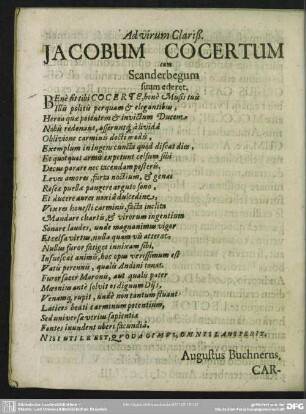 Ad virum Clariss.
JACOBUM COCERTUM
cum
Scanderbegum
suum ederet.
BEnè est tibi COCERTE, benè Musis tuis
Illis politis perquam & elegantibus,
Heroa quæ potentem & invictum Ducem
Nihil redonant, asseruntq́; à lividâ
Oblivione carminis docti malâ,
Exemplum in ingens cuncta quod discat dies,
Et quotquot armis expetunt celsum sibi
Decus parare nec tacendum posteris.
Leves amores, furta noctium, & genas
Roseæ puellæ pangere arguto sono,
Et ducere aures noxiâ dulcedine,
Vix res honesti carminis, facta inclita
Mandare chartis, & virorum ingentium
Sonare laudes, unde magnanimus vigor
Et celsa virtus, nulla quam vis atterat,
Nullus furor fatiget innixam sibi,
Insuescat animis, hoc opus verissimum est
Vatis perennis, qualis Andini tonat
Furor sacer Maronis, aut qualis pater
Mæonius ante solvit os dignum Diis,
Venamq́; rupit, unde non tantum fluant
Latices beati carminum potentium,
Sed universa verius sapientia
Fontes inundent uberi facundiâ,
NISI UTILE EST, QUOD
Augustus Buchnerus.
CAR-